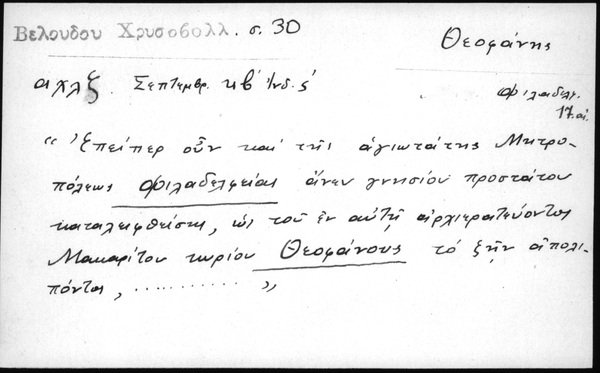 Βελουδου Χρυσοβολλ. σ. 30
Θεοφάνης
αχλζ Σεπτεμβρ. κβ' Ινδ. ς'
Φιλαδελ.
17. αι.
“ Ἐπείπερ οὖν καὶ τῆς ἁγιωτάτης Μητρο-
πόλεως Φιλαδελφείας ἄνευ γνησίου προστάτου
καταλειφθείσης, ὡς τοῦ ἐν αὐτῇ ἀρχιερατεύοντος
Μακαρίτου κυρίου Θεοφάνους τὸ ζῆν ἀπολι-
πόντος, .......... „